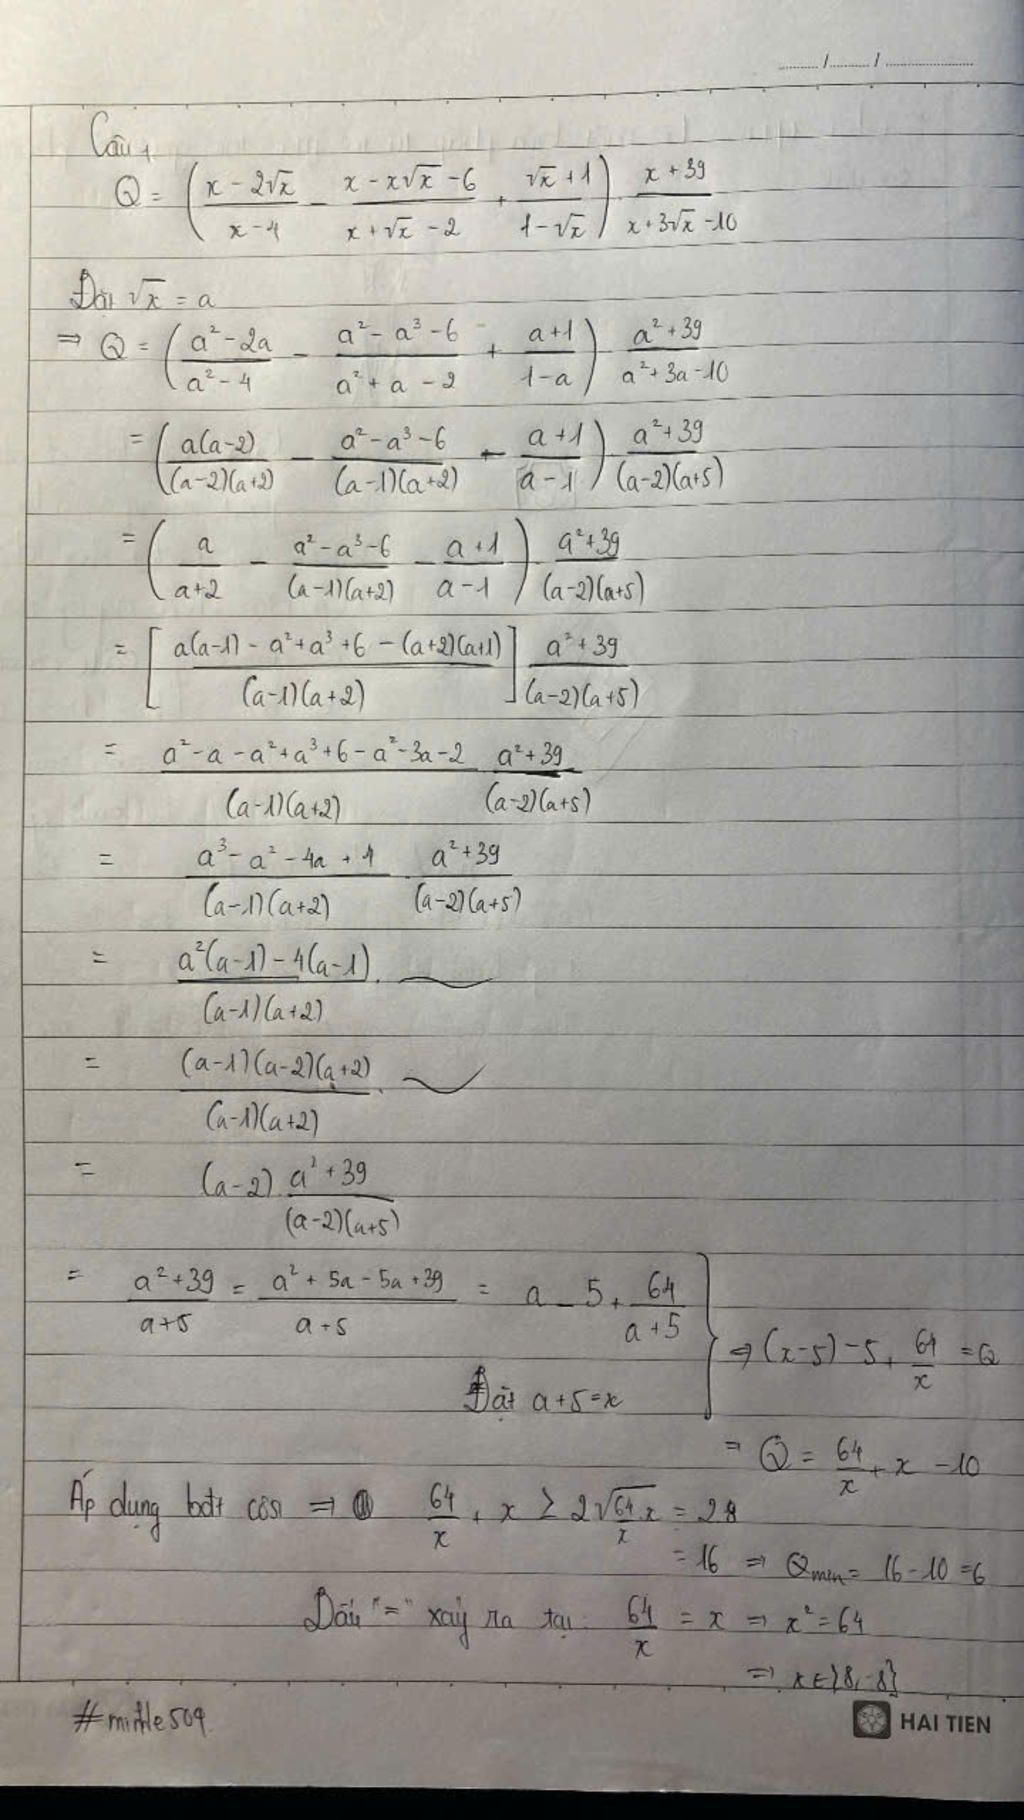 Câu 1
Q = ( (x - 2√x)/(x - 4) - (x - x√x - 6)/(x + √x - 2) + (√x + 1)/(1 - √x) ) (x + 39)/(x + 3√x - 10)
√x = a
⇒ Q = ( (a² - 2a)/(a² - 4) - (a² - a³ - 6)/(a² + a - 2) + (a + 1)/(1 - a) ) (a² + 39)/(a² + 3a - 10)
= ( a(a-2)/((a-2)(a+2)) - (a² - a³ - 6)/((a-1)(a+2)) - (a + 1)/(a - 1) ) (a² + 39)/((a-2)(a+5))
= ( a/(a+2) - (a² - a³ - 6)/((a-1)(a+2)) - (a + 1)/(a - 1) ) (a² + 39)/((a-2)(a+5))
= [ (a(a-1) - a² + a³ + 6 - (a+2)(a+1))/((a-1)(a+2)) ] (a² + 39)/((a-2)(a+5))
= (a² - a - a² + a³ + 6 - a² - 3a - 2)/((a-1)(a+2)) (a² + 39)/((a-2)(a+5))
= (a³ - a² - 4a + 4)/((a-1)(a+2)) · (a² + 39)/((a-2)(a+5))
= (a²(a-1) - 4(a-1))/((a-1)(a+2)) .
= ((a-1)(a-2)(a+2))/((a-1)(a+2)) .
= (a-2) . (a² + 39)/((a-2)(a+5))
= (a² + 39)/(a + 5) = (a² + 5a - 5a + 39)/(a + 5) = a - 5 + 64/(a + 5)
Đặt a + 5 = x
} ⇒ (x - 5) - 5 + 64/x = Q
⇒ Q = 64/x + x - 10
Áp dụng bđt cosi ⇒ 64/x + x ≥ 2√(64/x . x) = 2.8
= 16 ⇒ Qmin = 16 - 10 = 6
Dấu "=" xảy ra tại: 64/x = x ⇒ x² = 64
⇒ x ∈ {8, -8}
HAI TIEN